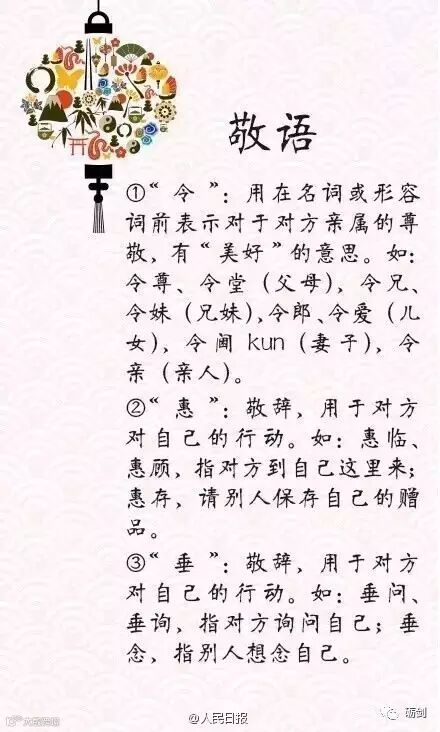 敬语
①“令”：用在名词或形容
词前表示对于对方亲属的尊
敬，有“美好”的意思。如：
令尊、令堂（父母），令兄、
令妹（兄妹），令郎、令爱（儿
女），令阃 kun（妻子），令
亲（亲人）。
②“惠”：敬辞，用于对方
对自己的行动。如：惠临、
惠顾，指对方到自己这里来；
惠存，请别人保存自己的赠
品。
③“垂”：敬辞，用于对方
对自己的行动。如：垂问、
垂询，指对方询问自己；垂
念，指别人想念自己。
@人民日报
砺剑